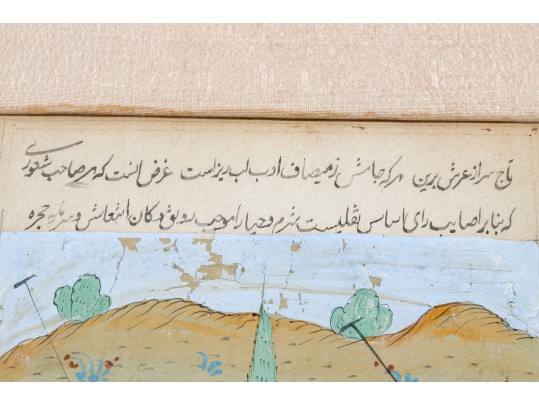 تاج سر از عرش برین هرکه جامش ز می صاف ادب لبریز است غرض انست که هر صاحب شعوری
که بنابر اصابت رای اساس شرم و حیا را موجب رونق دکان انتعاش و سرمایه حجره